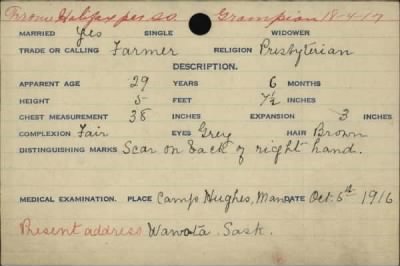 From Halifax per SS. Grampian 18-4-17
MARRIED Yes SINGLE WIDOWER
TRADE OR CALLING Farmer RELIGION Presbyterian
DESCRIPTION.
APPARENT AGE 29 YEARS 6 MONTHS
HEIGHT 5 FEET 7½ INCHES
CHEST MEASUREMENT 38 INCHES EXPANSION 3 INCHES
COMPLEXION Fair EYES Grey HAIR Brown
DISTINGUISHING MARKS Scar on back of right hand.
MEDICAL EXAMINATION. PLACE Camp Hughes, Man. DATE Oct. 5th 1916
Present address Wawota. Sask.